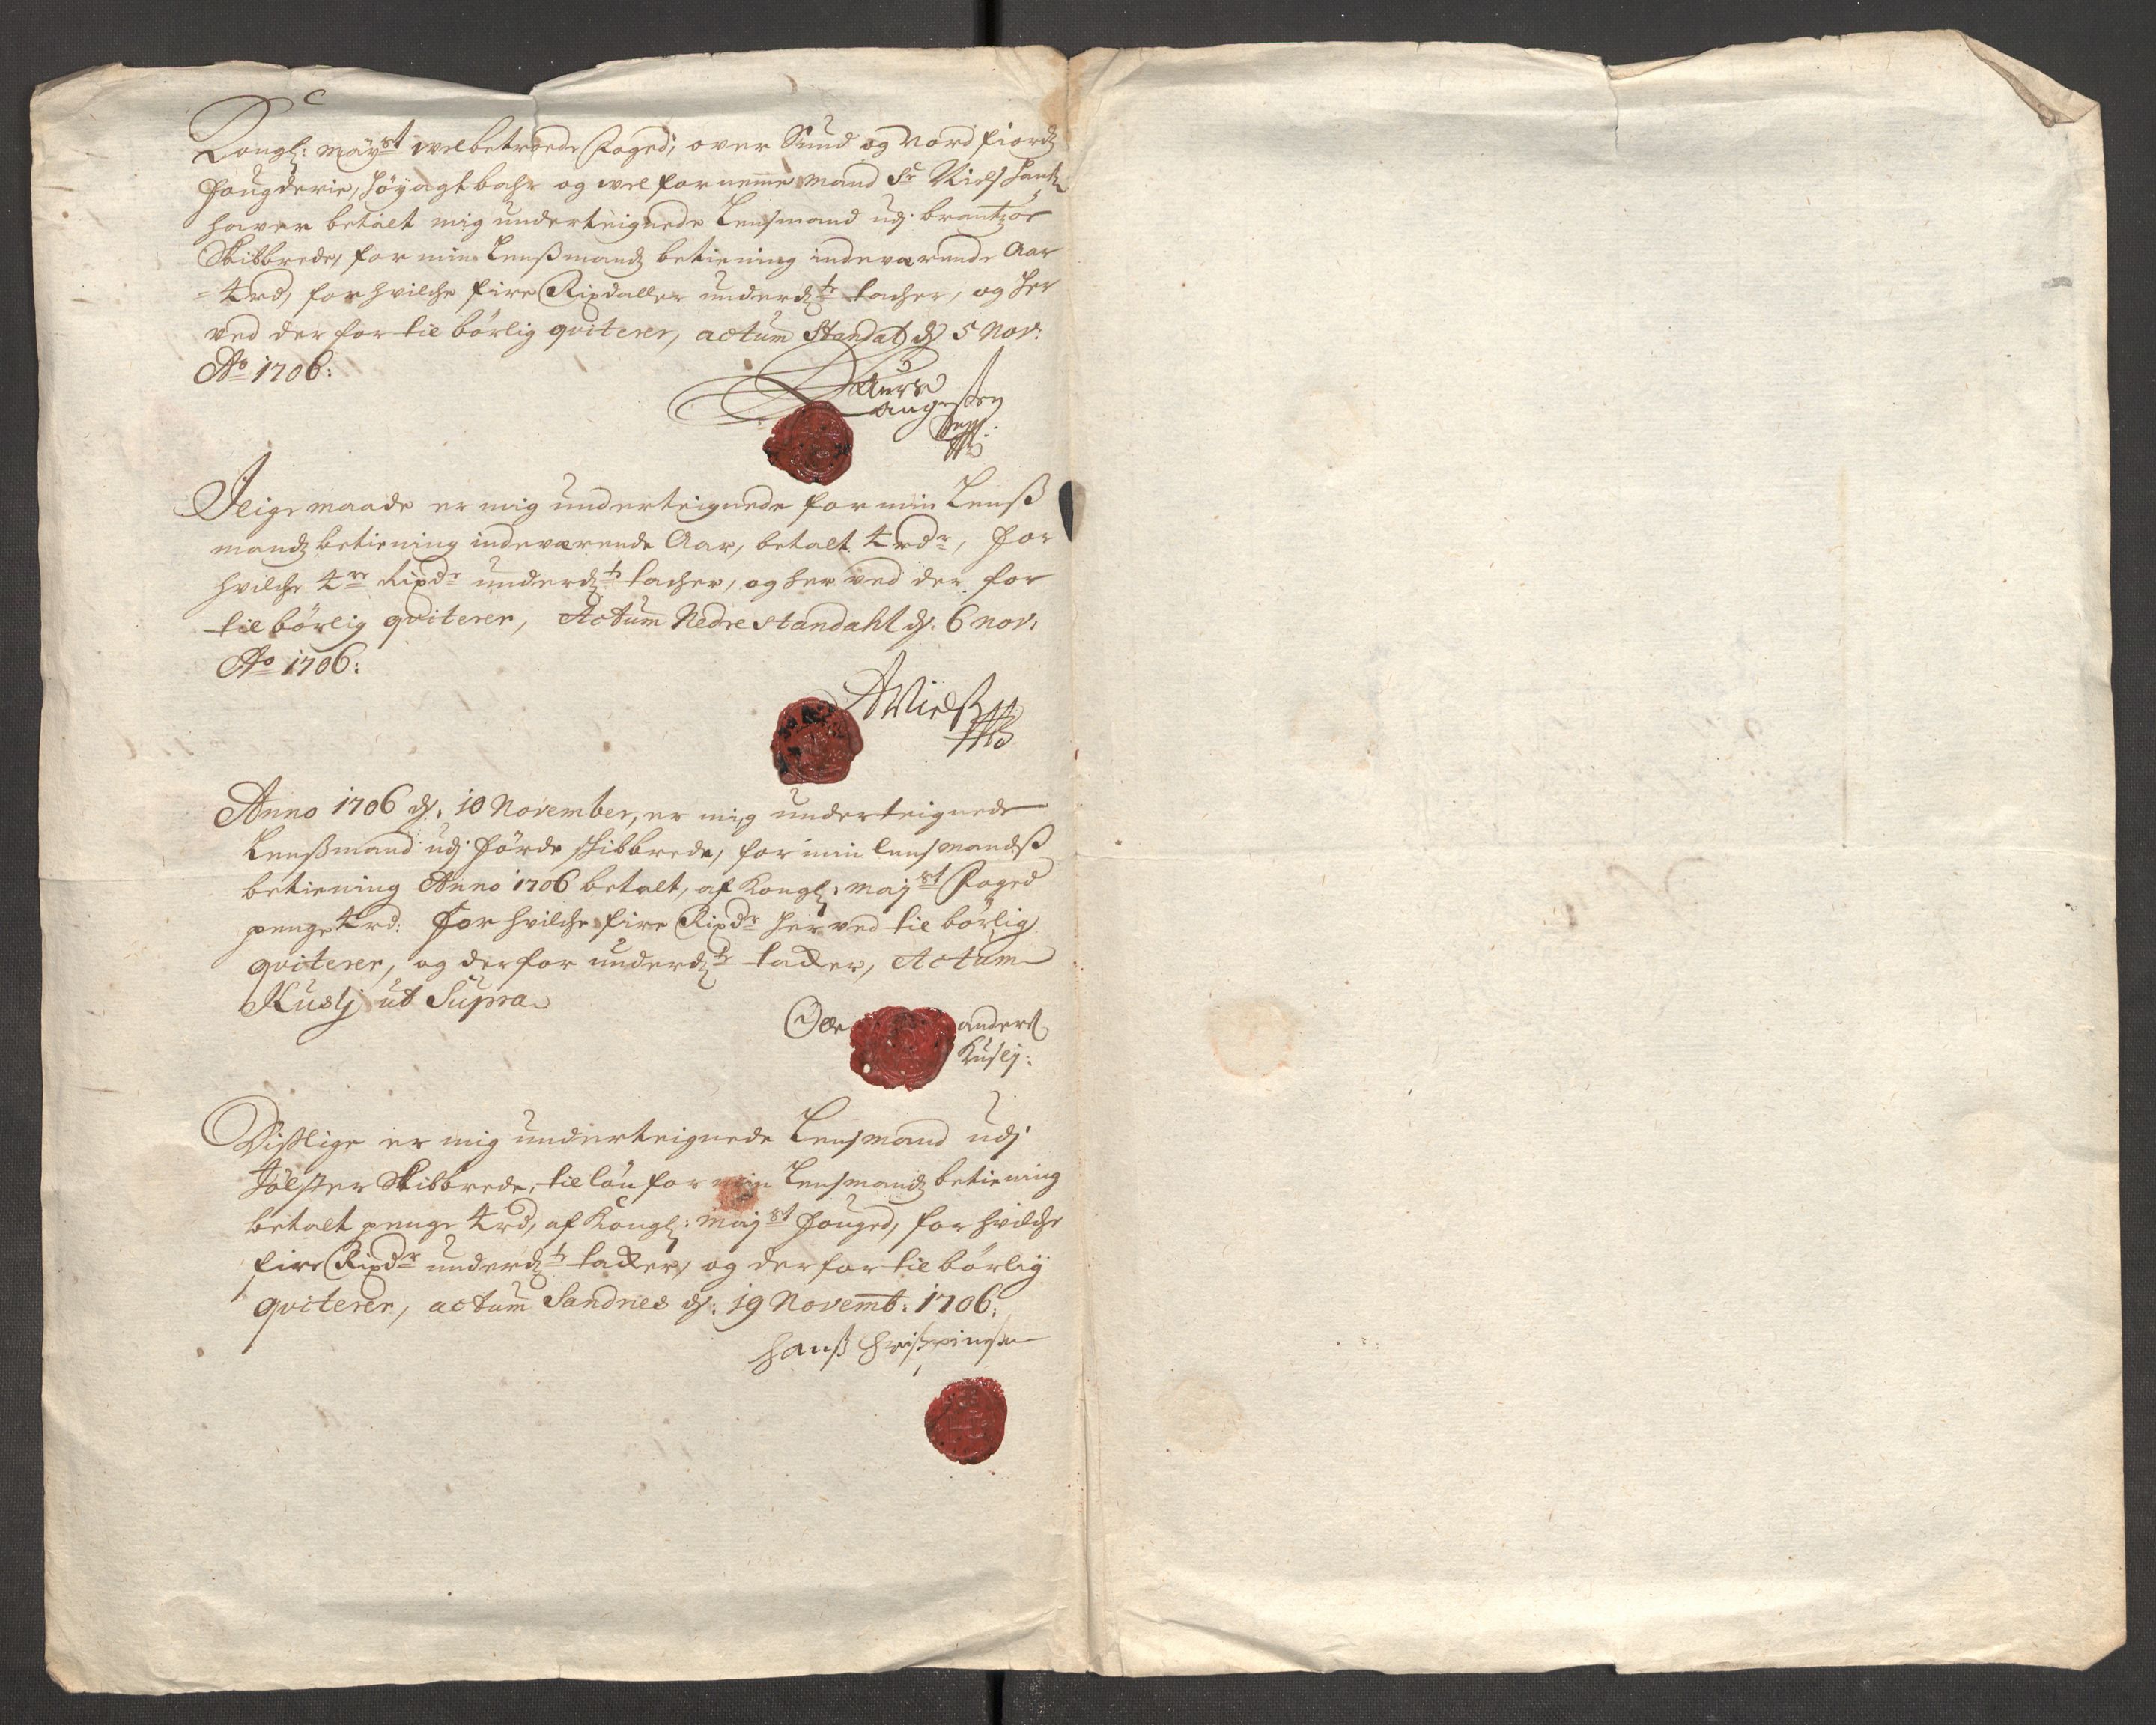 Kongl: Mayst welbetroede Foged, over Sund og Nordfiords
Fougderie, Höyagtbahr og welfornemme Mand Sr Niels Hantz
haver betalt mig underteignede Lensmand udj brantzöe
Skibbrede, for min Lenßmands betiening indeværende Aar
4 rd, for hvilche fire Rixdaller underdst tacher, og her
ved der for tilbörlig qviterer, actum Standal d 5 Nov:
Ao 1706:
Laurs
Augesten
Jligemaade er mig underteignede for min Lenß
mandz betiening indeværende Aar, betalt 4 rdr, for
hvilche 4re Rixdr underdst tacher, og her ved der for
tilbörlig qviterer, Actum Nedre standahl d: 6 nov:
Ao 1706:
ANielß
Anno 1706 d: 10 November, er mig underteignede
Lenßmand udj förde skibbrede, for min lensmandß
betiening Anno 1706 betalt, af Kongl: mayst Foged
penge 4 rd: for hvilche fire Rixdr her ved tilbörlig
qviterer, og derfor underdst tacker, Actum
Kuslj ut Supra
Ole anders
Kuslj:
Disligge er mig underteignede Lensmand udj
Jölster Skibbrede, til lön for min Lensmandz betiening
betalt penge 4 rd, af Kongl: Mayst Fouged, for hvilche
fire Rixdr underdst tacker, og der for tilbörlig
qviterer, actum Sandnes d: 19 Novemb: 1706:
Hanß